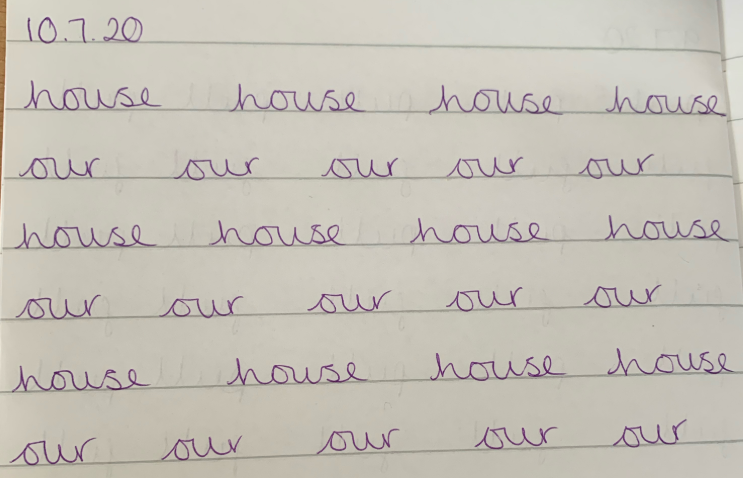 10.7.20
house house house house
our our our our our
house house house house
our our our our our
house house house house
our our our our our